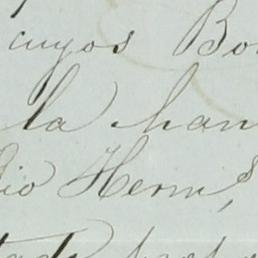 cuyos Bo
la han
dio Herm.s,